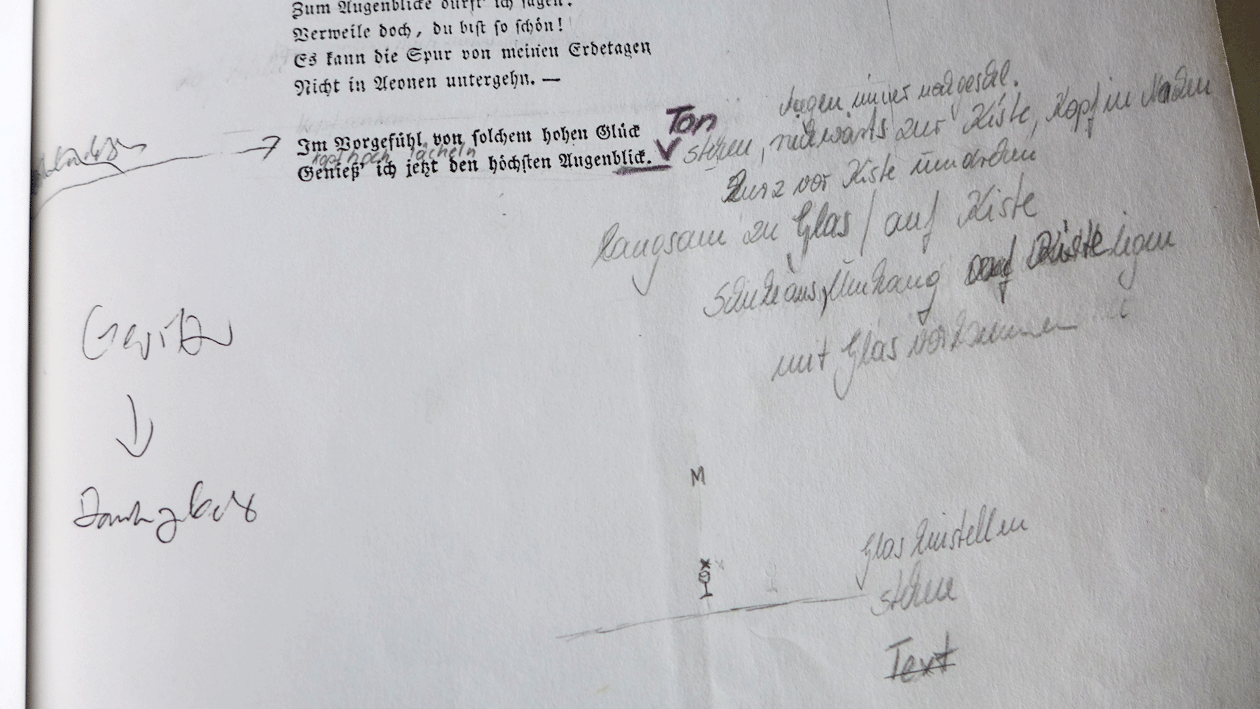 Zum Augenblicke dürft' ich sagen:
Verweile doch, du bist so schön!
Es kann die Spur von meinen Erdetagen
Nicht in Aeonen untergehn. —
Im Vorgefühl von solchem hohen Glück
Kopf hoch lächeln
Genieß' ich jetzt den höchsten Augenblick.
Ton
Augen immer
stehen, rückwärts zur Kiste, Kopf in Nacken
Kurz vor Kiste umdrehen
Langsam zu Glas / auf Kiste
Kiste legen
mit Glas vorkommen
Gewitter
M
Glas hinstellen
stehen
Text